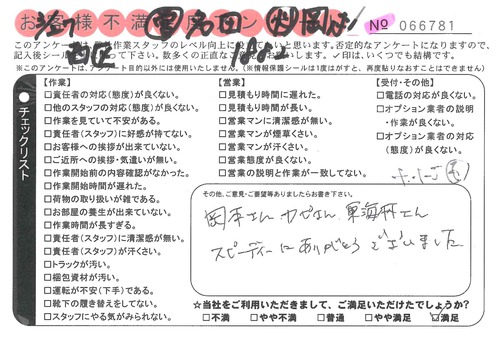 お客様不満
№ 066781
このアンケートは、
作業スタッフのレベル向上に
と思います。否定的なアンケートになりますので、
記入後シール
って下さい。数多くの正直な
お願いします。✓印は、いくつでも結構です。
※このアンケートは、アンケート目的以外には使用いたしません。(※情報保護シールは1度はがすと、再度貼りなおすことはできません)
チェックリスト
【作業】
□責任者の対応(態度)が良くない。
□他のスタッフの対応(態度)が良くない。
□作業を見ていて不安がある。
□責任者(スタッフ)に好感が持てない。
□お客様への挨拶が出来ていない。
□ご近所への挨拶・気遣いが無い。
□作業開始前の内容確認がなかった。
□作業開始時間が遅れた。
□荷物の取り扱いが雑である。
□お部屋の養生が出来ていない。
□作業時間が長すぎる。
□責任者(スタッフ)に清潔感が無い。
□責任者(スタッフ)が汗くさい。
□トラックが汚い。
□梱包資材が汚い。
□運転が不安(下手)である。
□靴下の履き替えをしてない。
□スタッフにやる気がみられない。
【営業】
□見積もり時間に遅れた。
□見積もり時間が長い。
□営業マンに清潔感が無い。
□営業マンが煙草くさい。
□営業マンが汗くさい。
□営業態度が良くない。
□営業の説明と作業が一致してない。
【受付・その他】
□電話の対応が良くない。
□オプション業者の説明
・作業が良くない。
□オプション業者の対応
(態度)が良くない。
その他、ご意見・ご要望等ありましたらお書き下さい。
岡本さん
東海林さん
スピーディーにありがとうございました
☆当社をご利用いただきまして、ご満足いただけたでしょうか?
□不満 □やや不満 □普通 □やや満足 ☑満足